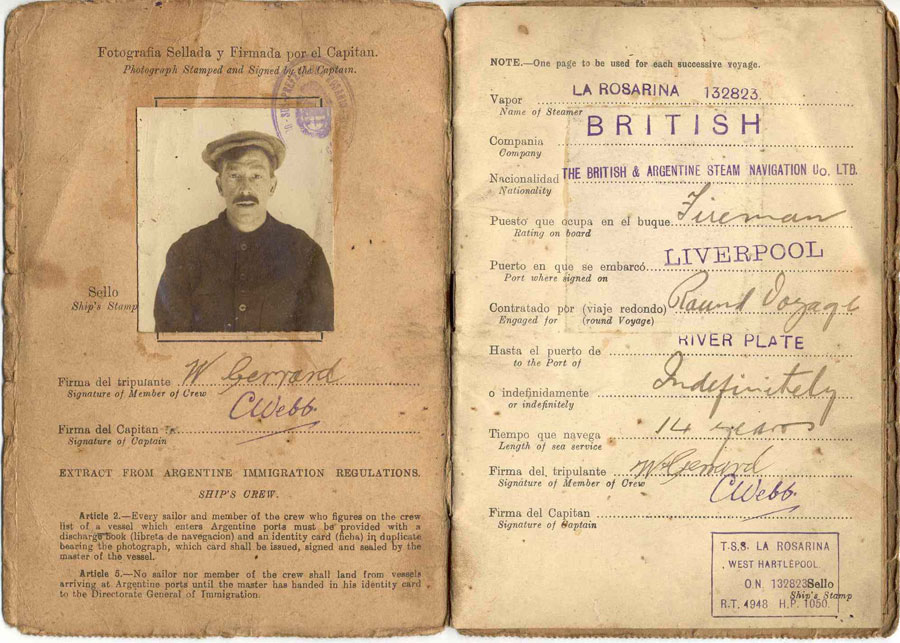 Fotografia Sellada y Firmada por el Capitan.
Photograph Stamped and Signed by the Captain.
Sello
Ship's Stamp
Firma del tripulante W Gerrard
Signature of Member of Crew
CWebb.
Firma del Capitan
Signature of Captain
EXTRACT FROM ARGENTINE IMMIGRATION REGULATIONS.
SHIP'S CREW.
Article 2.—Every sailor and member of the crew who figures on the crew
list of a vessel which enters Argentine ports must be provided with a
discharge book (libreta de navegacion) and an identity card (ficha) in duplicate
bearing the photograph, which card shall be issued, signed and sealed by the
master of the vessel.
Article 5.—No sailor nor member of the crew shall land from vessels
arriving at Argentine ports until the master has handed in his identity card
to the Directorate General of Immigration.
NOTE.—One page to be used for each successive voyage.
Vapor LA ROSARINA 132823
Name of Steamer
BRITISH
Compania
Company
Nacionalidad THE BRITISH & ARGENTINE STEAM NAVIGATION Co. LTD.
Nationality
Puesto que ocupa en el buque Fireman
Rating on board
Puerto en que se embarcó LIVERPOOL
Port where signed on
Contratado por (viaje redondo) Round Voyage
Engaged for (round Voyage)
Hasta el puerto de RIVER PLATE
to the Port of
o indefinidamente Indefinitely
or indefinitely
Tiempo que navega 14 years
Length of sea service
Firma del tripulante W Gerrard
Signature of Member of Crew
CWebb.
Firma del Capitan
Signature of Captain
T.S.S. LA ROSARINA
WEST HARTLEPOOL
O.N. 132823 Sello
Ship's Stamp
R.T. 4948 H.P. 1050.